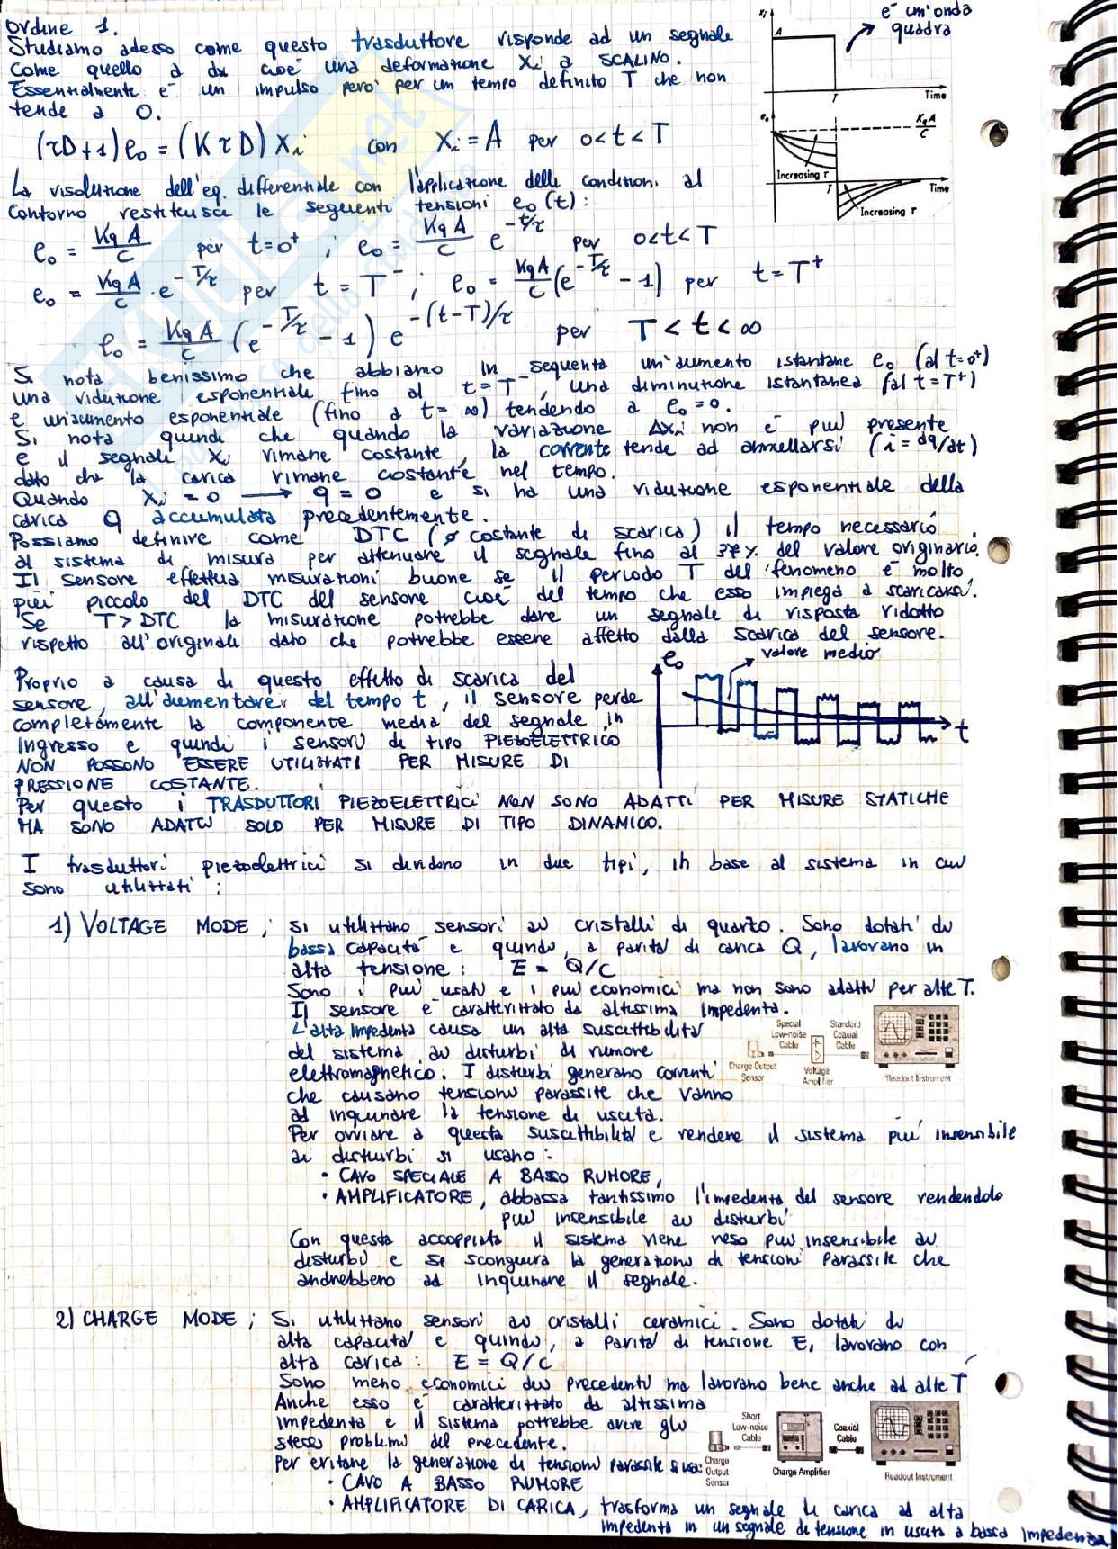 ordine 1.
Studiamo adesso come questo trasduttore risponde ad un segnale
come quello a dx cioè una deformazione Xi a SCALINO.
Essenzialmente è un impulso però per un tempo definito T che non
tende a 0.
è un'onda
quadra
A
T
Time
(τD+1)e₀ = (KτD)Xi con Xi = A per 0<t<T
e₀
KqA/C
Increasing τ
Time
Increasing τ
La risoluzione dell'eq. differenziale con l'applicazione delle condizioni al
contorno restituisce le seguenti tensioni e₀(t):
e₀ = KqA/C per t=0⁺ ; e₀ = KqA/C e^(-t/τ) per 0<t<T
e₀ = KqA/C · e^(-T/τ) per t = T⁻ ; e₀ = KqA/C (e^(-T/τ) - 1) per t = T⁺
e₀ = KqA/C (e^(-T/τ) - 1) e^(-(t-T)/τ) per T < t < ∞
Si nota benissimo che abbiamo in sequenza un aumento istantane e₀ (al t=0⁺)
una riduzione esponenziale fino al t=T⁻, una diminuzione istantanea (al t=T⁺)
e un aumento esponenziale (fino a t=∞) tendendo a e₀=0.
Si nota quindi che quando la variazione Δxi non è più presente
e il segnale Xi rimane costante, la corrente tende ad annullarsi (i = dq/dt)
dato che la carica rimane costante nel tempo.
Quando Xi = 0 → q = 0 e si ha una riduzione esponenziale della
carica Q accumulata precedentemente.
Possiamo definire come DTC ( costante di scarica) il tempo necessario
al sistema di misura per attenuare il segnale fino al 37% del valore originario.
Il sensore effettua misurazioni buone se il periodo T del fenomeno è molto
più piccolo del DTC del sensore cioè del tempo che esso impiega a scaricarsi.
Se T>DTC la misurazione potrebbe dare un segnale di risposta ridotto
rispetto all'originale dato che potrebbe essere affetto dalla scarica del sensore.
e₀
valore medio
t
Proprio a causa di questo effetto di scarica del
sensore, all'aumentare del tempo t, il sensore perde
completamente la componente media del segnale in
ingresso e quindi i sensori di tipo PIEZOELETTRICO
NON POSSONO ESSERE UTILIZZATI PER MISURE DI
PRESSIONE COSTANTE.
Per questo i TRASDUTTORI PIEZOELETTRICI NON SONO ADATTI PER MISURE STATICHE
MA SONO ADATTI SOLO PER MISURE DI TIPO DINAMICO.
I trasduttori piezoelettrici si dividono in due tipi, in base al sistema in cui
sono utilizzati :
1) VOLTAGE MODE ; Si utilizzano sensori a cristalli di quarzo. Sono dotati di
bassa capacità e quindi, a parità di carica Q, lavorano in
alta tensione : E = Q/C
Sono i più usati e i più economici ma non sono adatti per alte T.
Il sensore è caratterizzato da altissima impedenza.
L'alta impedenza causa un alta suscettibilità
del sistema ai disturbi di rumore
elettromagnetico. I disturbi generano correnti
che causano tensioni parassite che vanno
ad inquinare la tensione di uscita.
Special
Low-noise
Cable
Standard
Coaxial
Cable
Charge Output
Sensor
Voltage
Amplifier
Readout Instrument
Per ovviare a questa suscettibilità e rendere il sistema più insensibile
ai disturbi si usano :
• CAVO SPECIALE A BASSO RUMORE,
• AMPLIFICATORE, abbassa tantissimo l'impedenza del sensore rendendolo
più insensibile ai disturbi
Con questa accoppiata il sistema viene reso più insensibile ai
disturbi e si scongiura la generazione di tensioni parassite che
andrebbero ad inquinare il segnale.
2) CHARGE MODE ; Si utilizzano sensori a cristalli ceramici. Sono dotati di
alta capacità e quindi, a parità di tensione E, lavorano con
alta carica : E = Q/C
Sono meno economici dei precedenti ma lavorano bene anche ad alte T
Anche esso è caratterizzato da altissima
impedenza e il sistema potrebbe avere gli
stessi problemi del precedente.
Per evitare la generazione di tensioni parassite si usa:
Short
Low-noise
Cable
Coaxial
Cable
Charge
Output
Sensor
Charge Amplifier
Readout Instrument
• CAVO A BASSO RUMORE
• AMPLIFICATORE DI CARICA, trasforma un segnale di carica ad alta
impedenza in un segnale di tensione in uscita a bassa impedenza